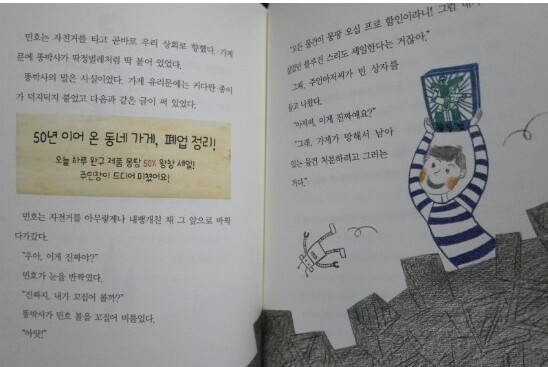 민호는 자전거를 타고 곧바로 우리 상회로 향했다. 가게
문에 똥박사가 딱정벌레처럼 딱 붙어 있었다.
똥박사의 말은 사실이었다. 가게 유리문에는 커다란 종이
가 덕지덕지 붙었고 다음과 같은 글이 써 있었다.
50년 이어 온 동네 가게, 폐업 정리!
오늘 하루 완구 제품 몽땅 50% 왕창 세일!
주인장이 드디어 미쳤어요!
민호는 자전거를 아무렇게나 내팽개친 채 그 앞으로 바짝
다가갔다.
"우아, 이게 진짜야?"
민호가 눈을 반짝였다.
"진짜지, 내가 꼬집어 볼까?"
똥박사가 민호 볼을 꼬집어 비틀었다.
"아얏!"
"모든 물건이 몽땅 오십 프로 할인이라니! 그럼 내가
블루건 스리도 세일한다는 거잖아."
그때, 주인아저씨가 빈 상자를
들고 나왔다.
"아저씨, 이게 진짜예요?"
"그래, 가게가 망해서 남아
있는 물건 처분하려고 그러는
거다."